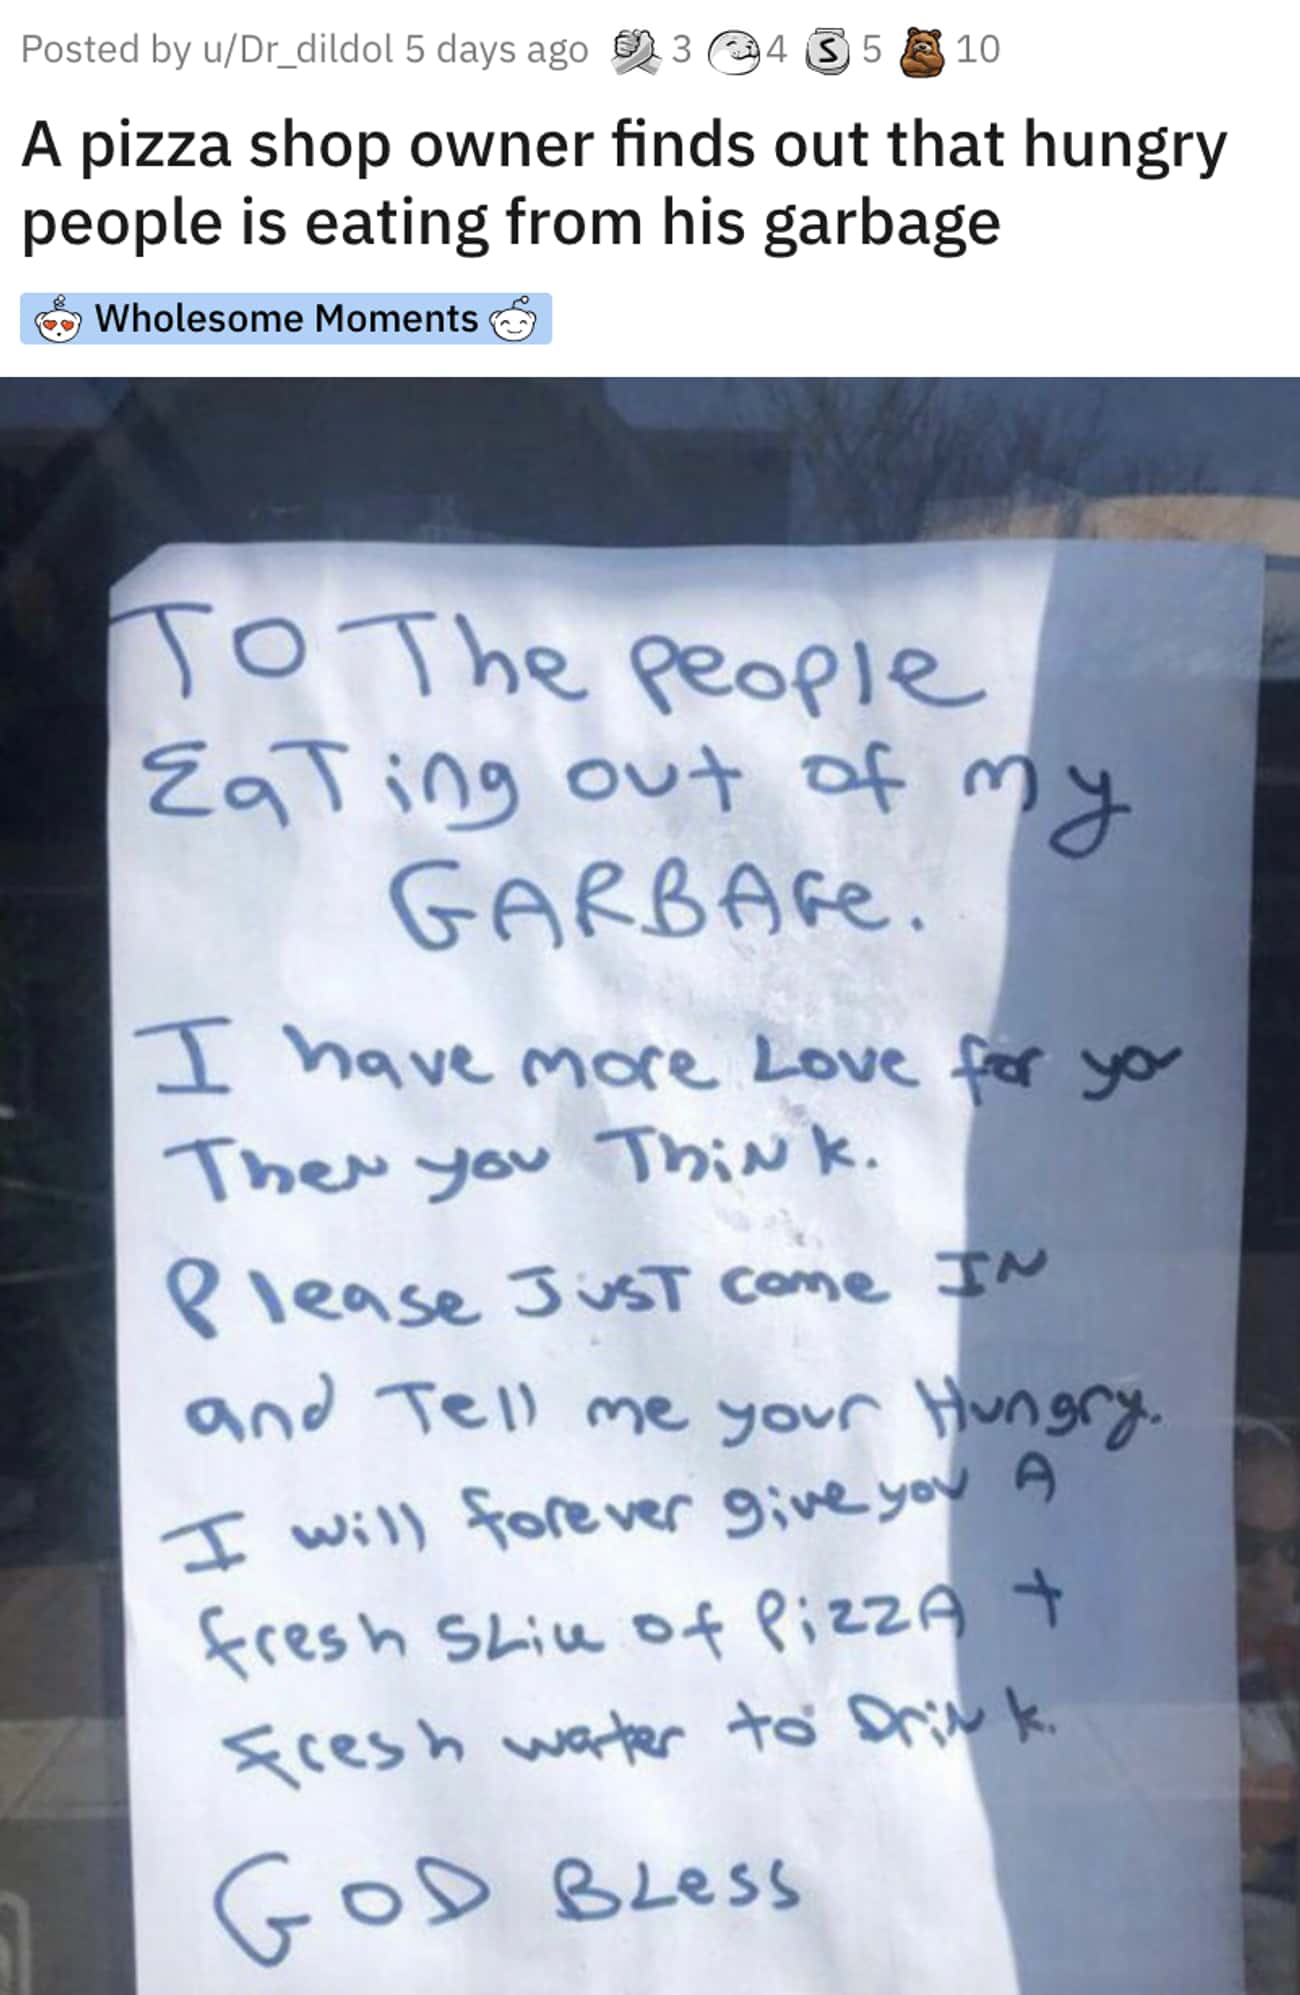 Posted by u/Dr_dildol 5 days ago 3 4 S 5 10
A pizza shop owner finds out that hungry
people is eating from his garbage
Wholesome Moments
TO The people
EaTing out of my
GARBAGe.
I have more Love for yo
Then you ThiNk.
Please JusT come IN
and Tell me your Hungry.
I will forever give you A
fresh SLice of PizzA +
fresh water to DriNk.
GOD BLess